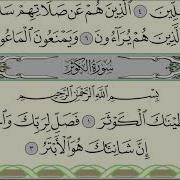 لِّينَ ٤ الَّذِينَ هُمْ عَن صَلَاتِهِمْ سَا
الَّذِينَ هُمْ يُرَاءُونَ ٦ وَيَمْنَعُونَ الْمَاعُو
سُورَةُ الْكَوْثَرِ
بِسْمِ اللَّهِ الرَّحْمَٰنِ الرَّحِيمِ
طَيْنَاكَ الْكَوْثَرَ ١ فَصَلِّ لِرَبِّكَ وَا
إِنَّ شَانِئَكَ هُوَ الْأَبْتَرُ ٣